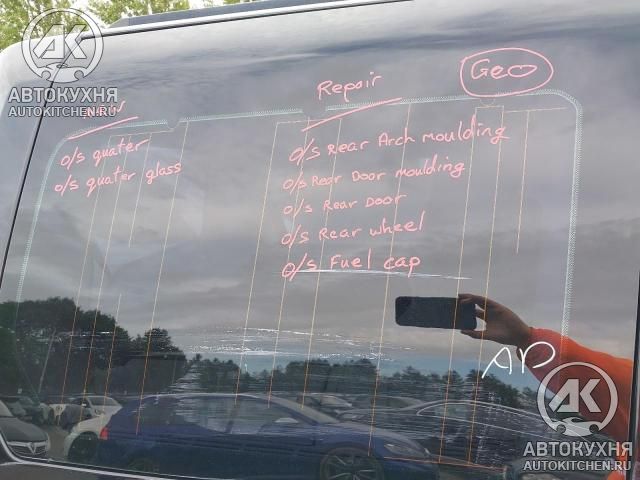 AK
АВТОКУХНЯ
AUTOKITCHEN.RU
o/s quater
o/s quater glass
Repair
Geo
o/s Rear Arch moulding
o/s Rear Door moulding
o/s Rear Door
o/s Rear wheel
o/s Fuel cap
AD
AK
АВТОКУХНЯ
AUTOKITCHEN.RU